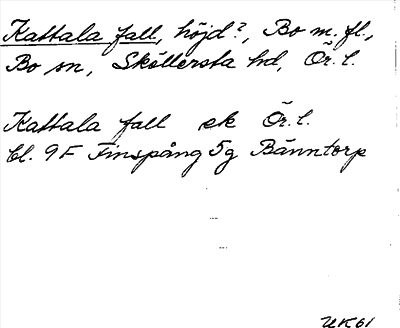 Kattala fall, höjd?, Bo m. fl.,
Bo sn, Sköllersta hd, Ör. l.
Kattala fall ek Ör. l.
bl. 9F Finspång 5g Bänntorp
UK 61